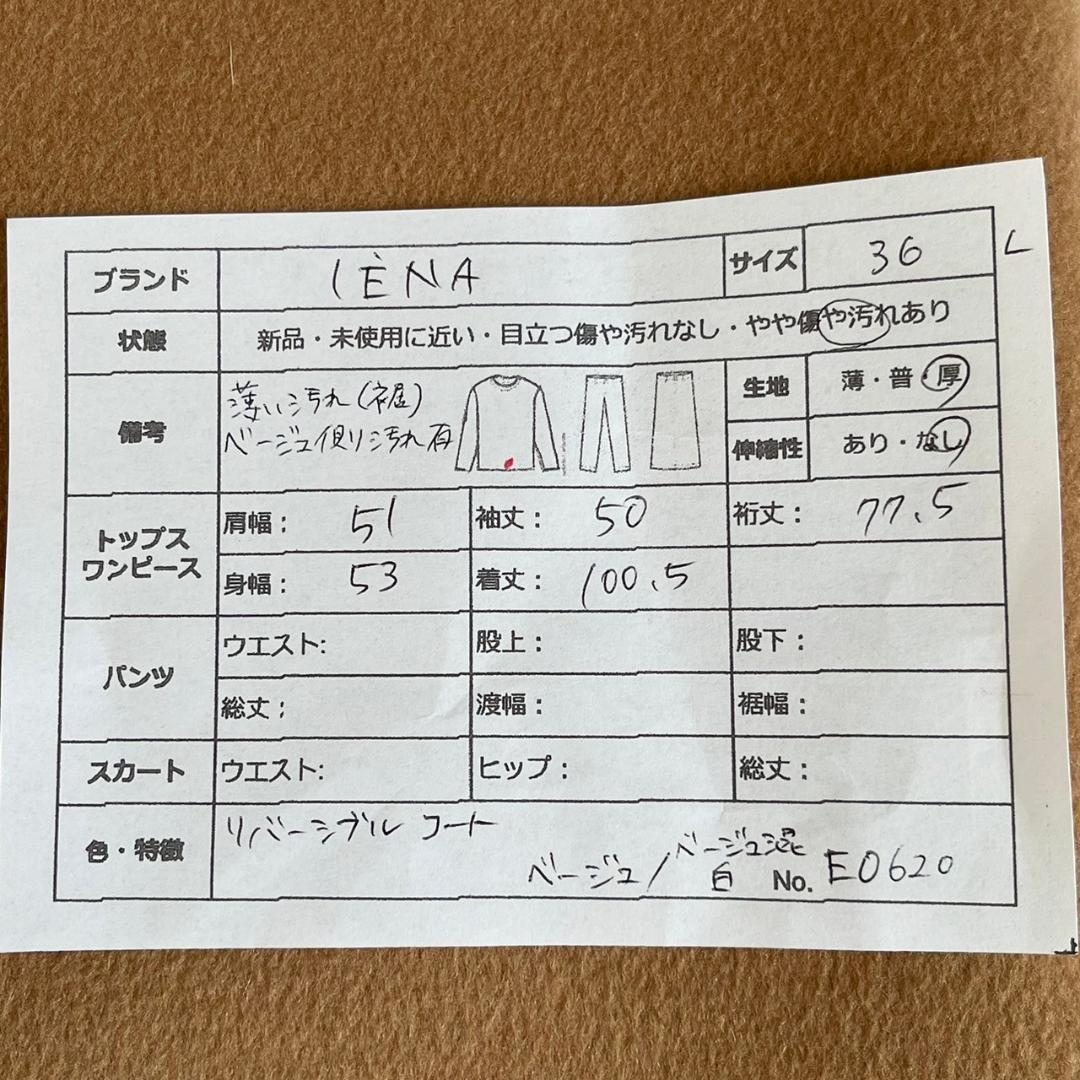 ブランド IÈNA サイズ 36 L
状態 新品・未使用に近い・目立つ傷や汚れなし・やや傷や汚れあり
備考 薄い汚れ(裾) 生地 薄・普・厚
ベージュ側り汚れ有 伸縮性 あり・なし
トップス ワンピース 肩幅: 51 袖丈: 50 裄丈: 77.5
身幅: 53 着丈: 100.5
パンツ ウエスト: 股上: 股下:
総丈: 渡幅: 裾幅:
スカート ウエスト: ヒップ: 総丈:
色・特徴 リバーシブル コート
ベージュ/ベージュ混
白 No. E0620